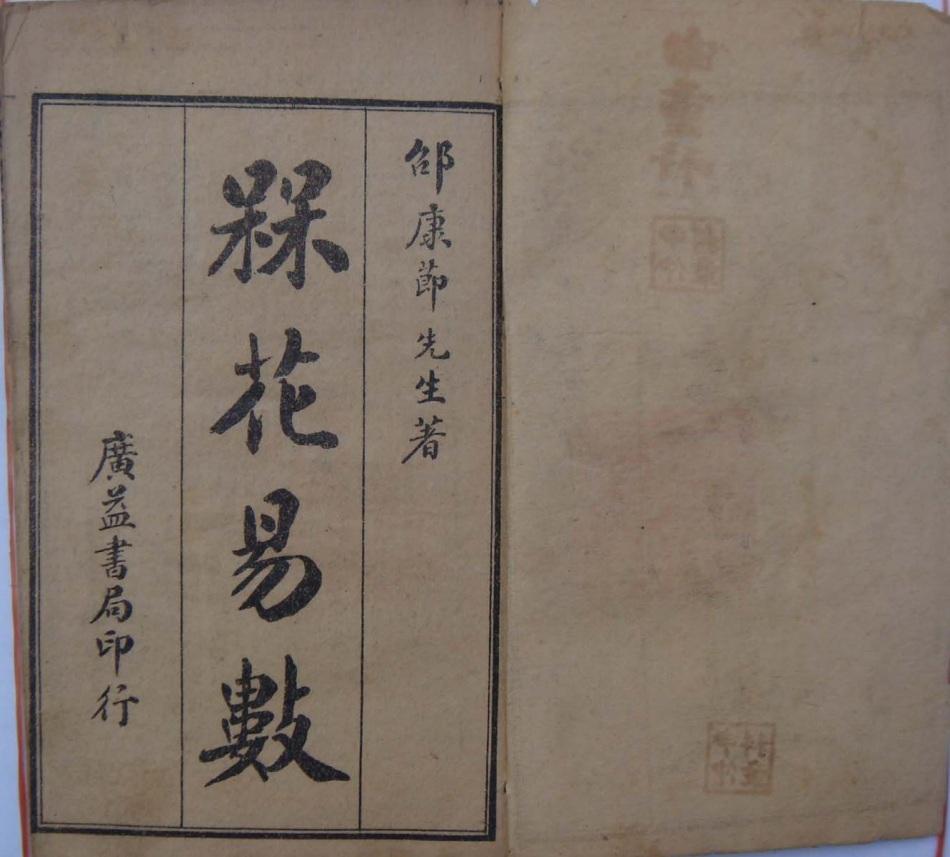 邵康節先生著
槑花易數
廣益書局印行